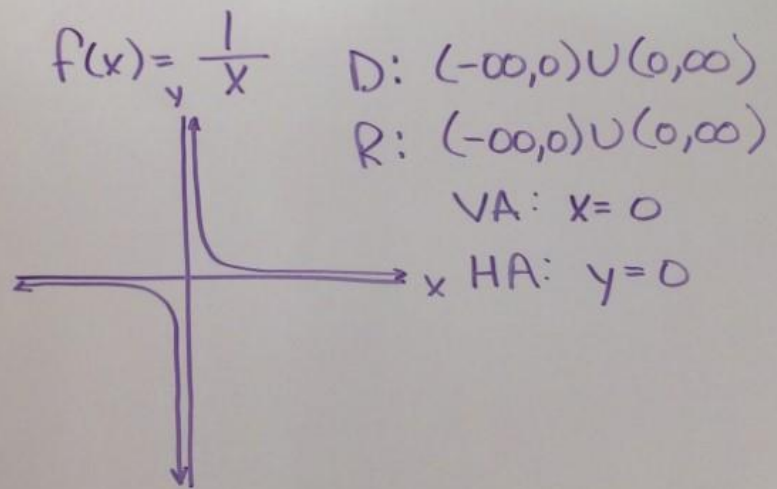 f(x)= 1/x
D: (-∞,0)∪(0,∞)
R: (-∞,0)∪(0,∞)
VA: x= 0
HA: y=0
y
x